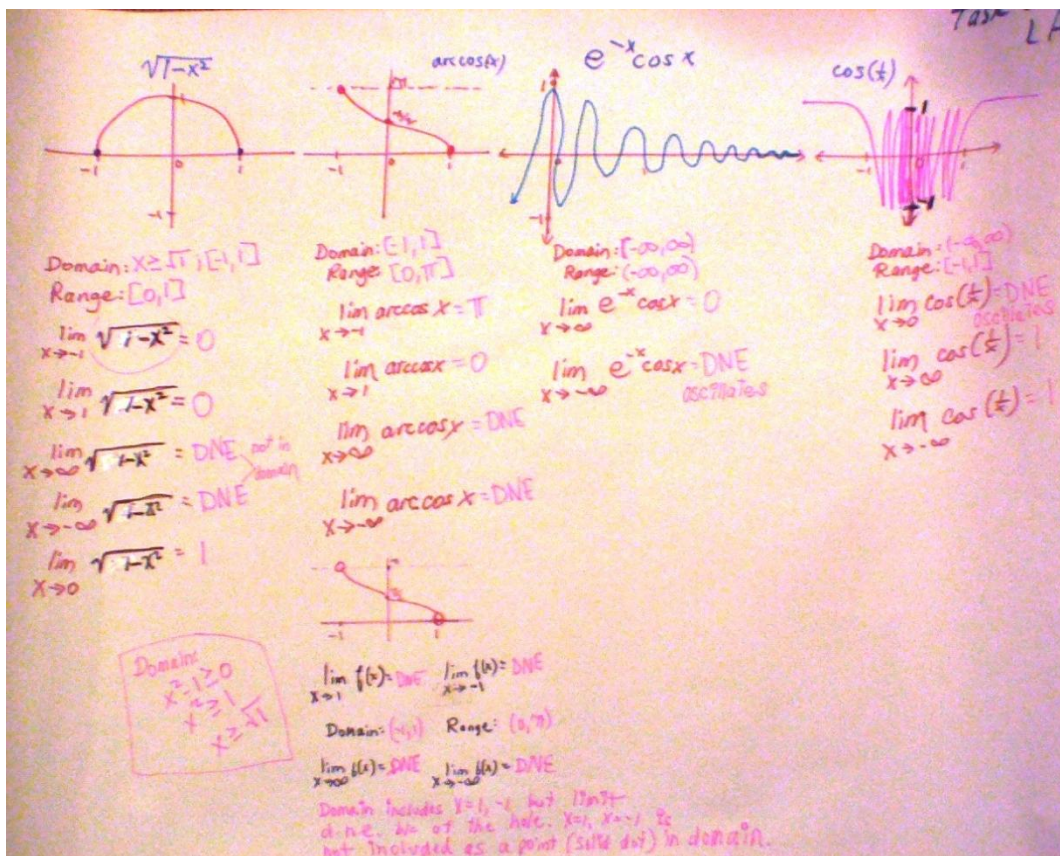 Task
√1-x²
1
-1
0
1
-1
Domain: x ≥ √1 ; [-1, 1]
Range: [0,1]
lim x→-1 √1-x² = 0
lim x→1 √1-x² = 0
lim x→∞ √1-x² = DNE not in
domain
lim x→-∞ √1-x² = DNE
lim x→0 √1-x² = 1
Domain:
x²-1≥0
x²≥1
x≥√1
arccos(x)
π
π/2
-1
0
1
Domain: [-1,1]
Range: [0,π]
lim x→-1 arccos x = π
lim x→1 arccosx = 0
lim x→∞ arccosx = DNE
lim x→-∞ arccos x = DNE
-1
1
lim x→1 f(x) = DNE lim x→-1 f(x) = DNE
Domain: (-1,1) Range: (0,π)
lim x→∞ f(x) = DNE lim x→-∞ f(x) = DNE
Domain includes x=1, -1 but limit
d.n.e. b/c of the hole. x=1, x=-1 is
not included as a point (solid dot) in domain.
e⁻ˣcos x
1
0
1
-1
Domain: [-∞,∞)
Range: (-∞,∞)
lim x→∞ e⁻ˣcosx = 0
lim x→-∞ e⁻ˣcosx = DNE
oscillates
cos(1/x)
1
-1
0
1
-1
Domain: (-∞,∞)
Range: [-1,1]
lim x→0 cos(1/x) = DNE
oscillates
lim x→∞ cos(1/x) = 1
lim x→-∞ cos(1/x) = 1